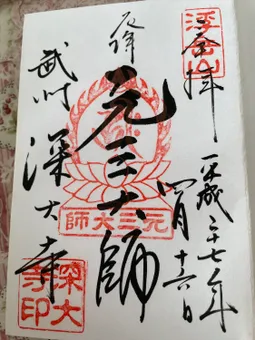 奉拝
浮岳山
平成二十七年
四月十六日
厄除
元三大師
元三大師
武州
深大寺
深大寺印